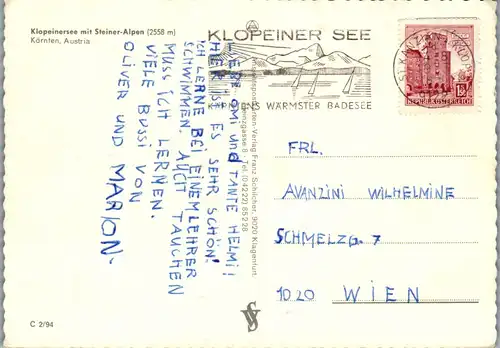 Klopeinersee mit Steiner-Alpen (2558 m)
Kärnten, Austria
KLOPEINER SEE
KÄRNTENS WÄRMSTER BADESEE
REPUBLIK ÖSTERREICH
LIEBE OMI und TANTE HELMI!
HIER IST ES SEHR SCHÖN!
ICH LERNE BEI EINEM LEHRER
SCHWIMMEN. AUCH TAUCHEN
MUSS ICH LERNEN.
VIELE BUSSI VON
OLIVER UND MARION.
Verlag Franz Schilcher, 9020 Klagenfurt,
gasse 8, Tel. (0 42 22) 85 2 28
FRL.
AVANZINI WILHELMINE
SCHMELZG. 7
1020 WIEN
C 2/94